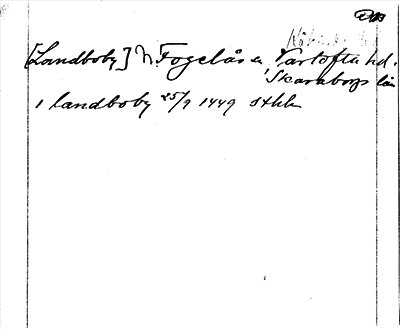 [Landboby] N. Fogelås sn Vartofta hd.
Skaraborgs län
i landboby 25/9 1449 Sthlm